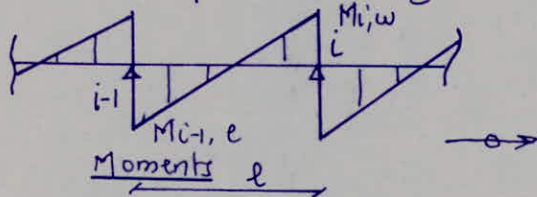 Mi,w
i
i-1
Mi-1, e
Moments
l